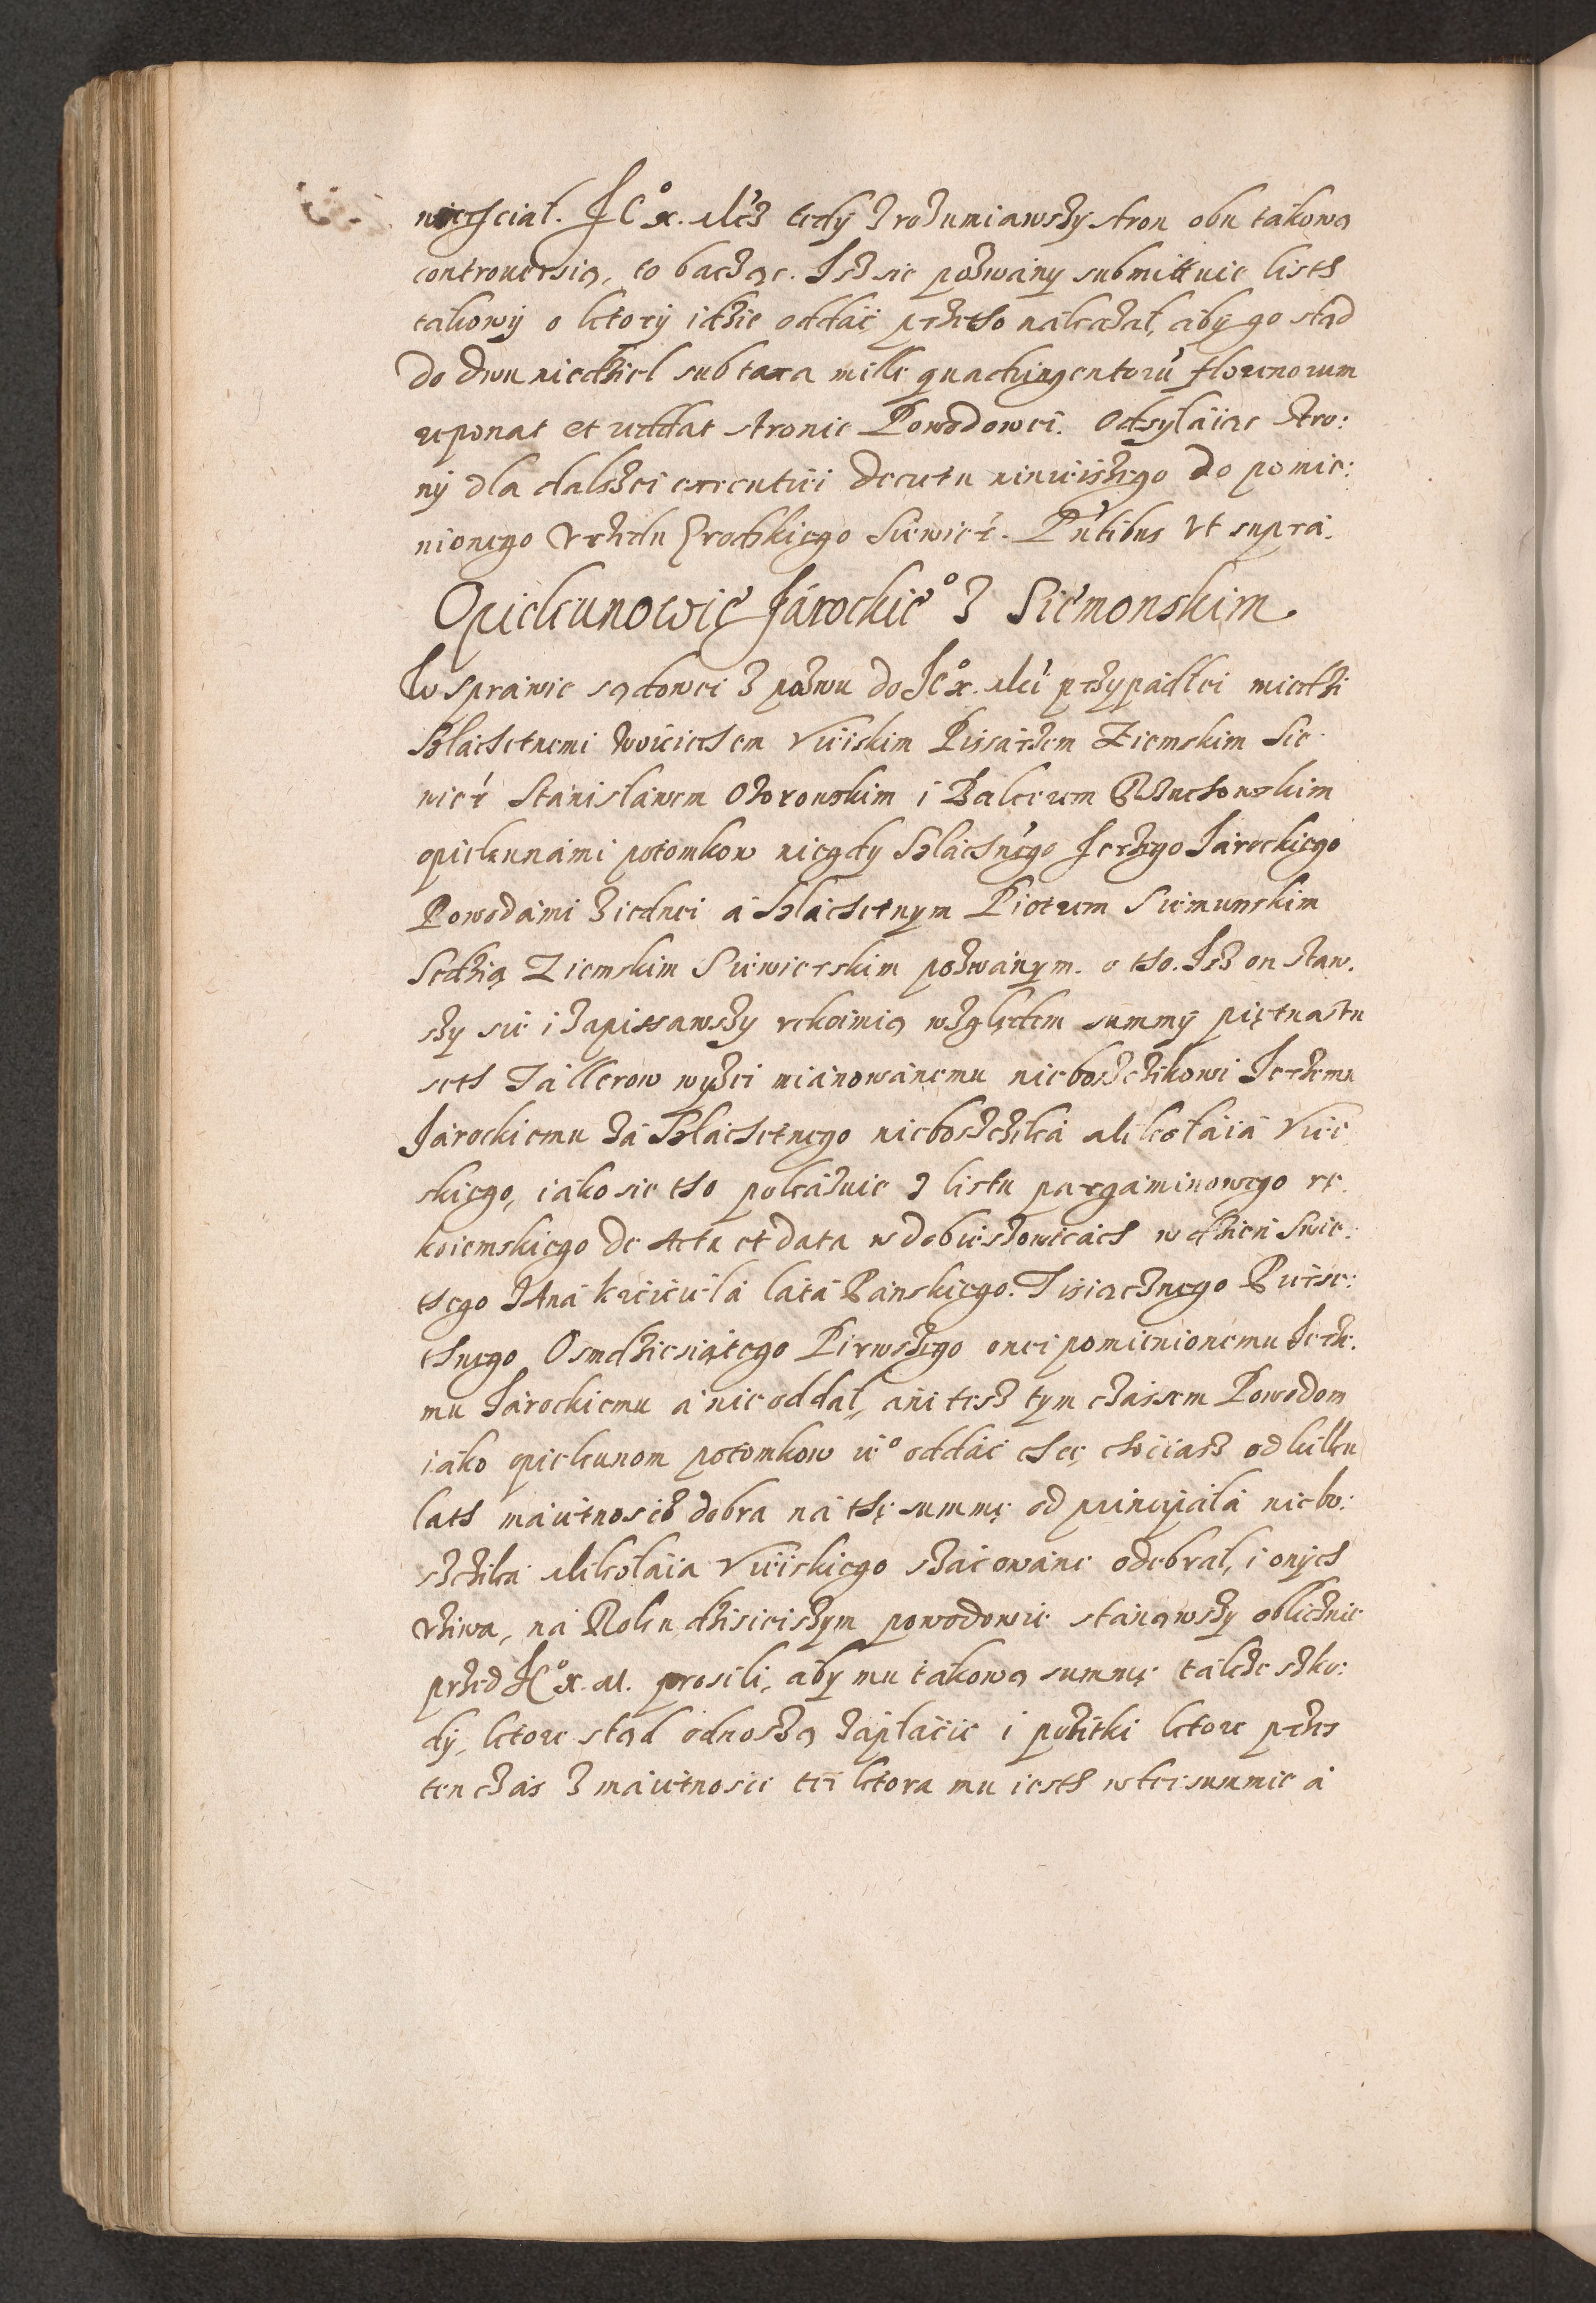 niechcial. Je° x. Mcz tedÿ zrozumiawszÿ stron obu takową
controuersią, to bacząc. Isz sie pozwany submittuie listh
takowÿ o ktorÿ idzie oddać, przetho nalezał, abÿ go stąd
do dwu niedziel sub taxa mille quadringentorū florenorum
reponat et reddat stronie Powodowei. Odsyłaiąc stro:
nÿ dla dalszei exrecutiei decretu ninieiszego do pomie:
nionego Vrzędu Grodzkiego Siewier. Pn̄tibus vt supra.
Opiekunowie Jarockie° z Siemonskim
W sprawie sądowei z pozwu do Je° x. Mci przypadłei miedzi
Szlachetnemi Woiciechem Vieiskim Pissarzem Ziemskim Sie
wier Stanisławem Ozorowskim i Balcerem Rznchowskim
opiekunami potomkow niegdy Szlachn̄ego Jerzego Jarockiego
Powodami z iednei a Szlachetnym Piotrem Siemunskim
Sedzią Ziemskim Siewierskim pozwanym. o tho. Isz on staw.
szy sie i zapissawszy rekoimią względem summÿ piętnastu
seth Tallerow wyżei mianowanemu nieboszczikowi Jerzemu
Jarockiemu za Szlachetnego nieboszczika Mikołaia Viei
skiego, iako sie tho pokazuie z listu pargaminowego rę.
koiemskiego de Acta et data w Dobieszowicach w dzien Swię:
tego Jana krzciciela lata Panskiego. Tisiącznego Piecse:
thnego Osmdziesiątego Pirwszego onei pomienionemu Jerze.
mu Jarockiemu a nie oddał, ani tesz tym czassem Powodom
iako opiekunom potomkow ie° oddać chce, chociasz od kilku
lath maietnoscz dobra na thę summę od principala niebo:
szczika Mikołaia Vieiskiego szacowane odebrał, i onÿch
vżiwa, na Roku dzisieiszym powodowie stanąwszy oblicznie
przed Je° x. M. prosili, aby mu takową summę także szko:
dÿ, ktore stąd odnoszą zapłacic i pożitki ktore przes
ten czas z maietnoscie tei ktora mu iesth w tei summie a